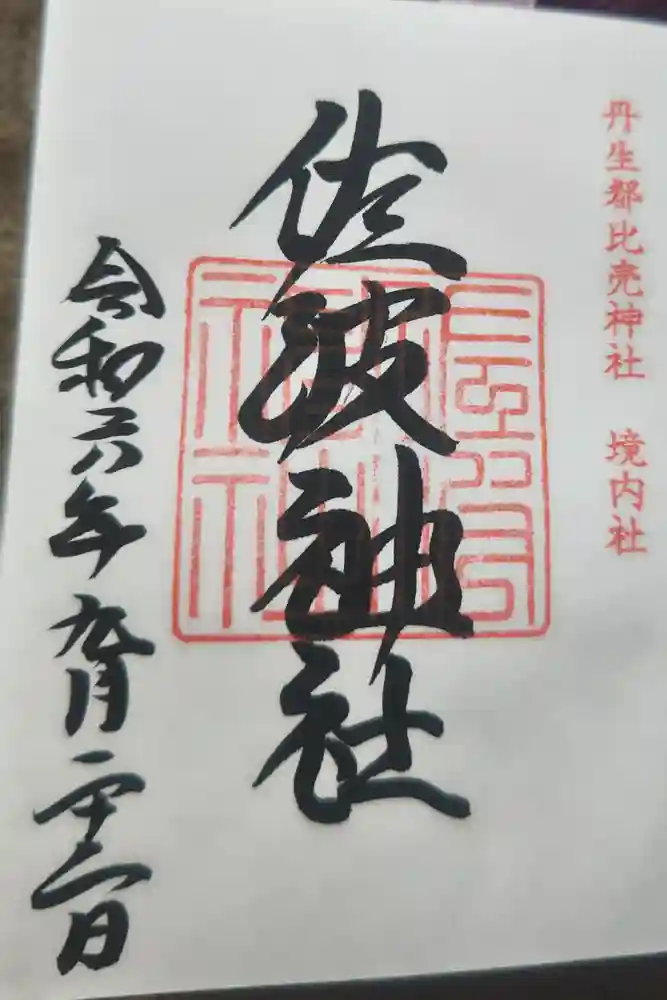 丹生都比売神社 境内社
佐波神社
令和六年九月二十二日